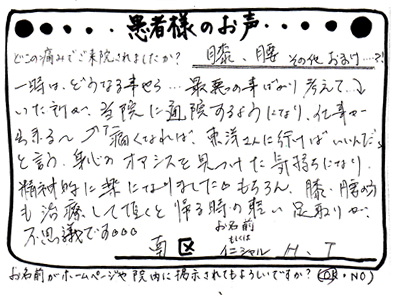 患者様のお声
どこの痛みでご来院されましたか？ 膝、腰 その他 おまけ…?!
一時は、どうなる事やら…最悪の事ばかり考えて
いたが、当院に通院するようになり、仕事が
出来る〜 痛くなれば、東洋さんに行けばいいんだ
と言う、身心のオアシスを見つけた気持ちになり
精神的に楽になりました。もちろん、膝、腰の方
も治療して頂くと帰る時の軽い足取りが、
不思議です。。。
南区 お名前もしくはイニシャル H、T
お名前がホームページや院内に掲示されてもよろしいですか？(OK・NO)